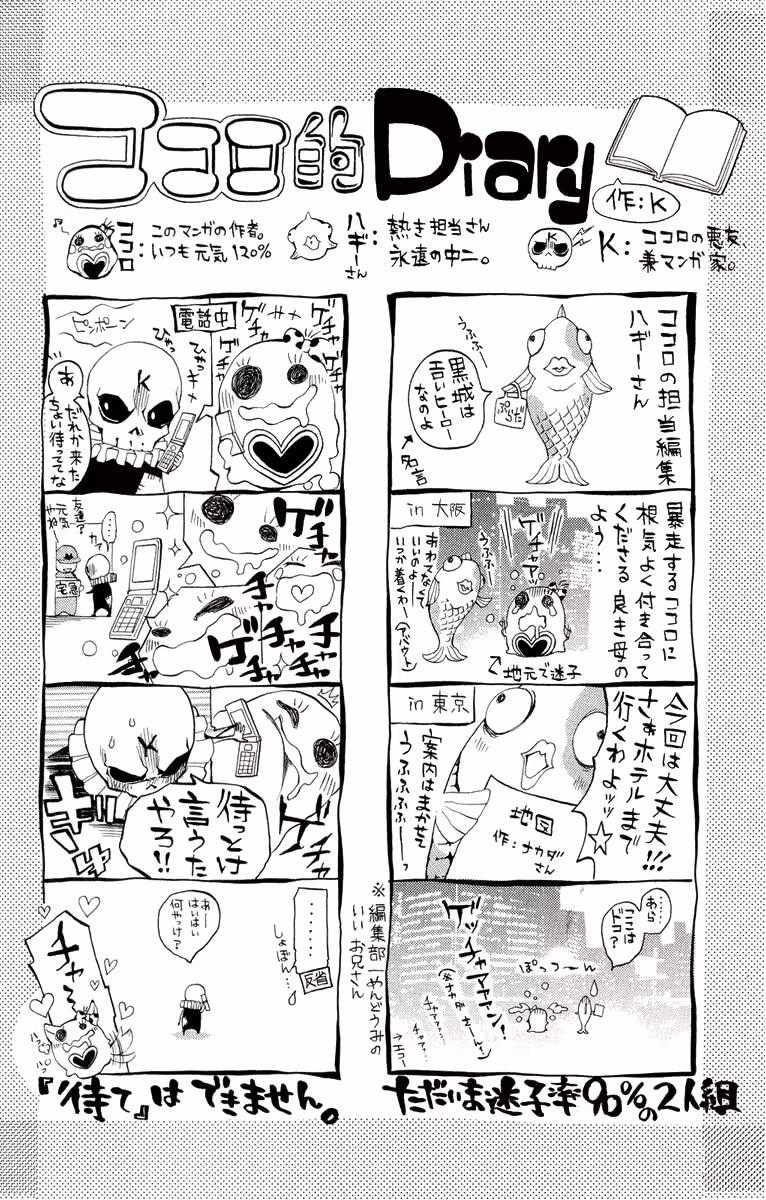 ココロ的Diary
作:K
ココロ:
このマンガの作者。
いつも元気120%
ハギーさん:
熱き担当さん
永遠の中二。
K:
ココロの悪友、
兼マンガ家。
ココロの担当編集
ハギーさん
うふふ…
黒城は
エロいヒーロー
なのよ
ぷらだ
↑名言
暴走するココロに
根気よく付き合って
くださる良き母の
よう…
in 大阪
ゲチャアァッ
うふふ…
あわてなくて
いいのよー
いつか着くわー(アバウト)
↑地元で迷子
今回は大丈夫!!!
さぁホテルまで
行くわよッッ☆
in 東京
地図
作:ナカダさん
案内はまかせて
うふふふふーっ
……
あら
ここは
ドコ?
ぽっつーん
ゲッチャマァァァン!
(※ナカダさーん)
チャマァァ…
チャァ…
→エコー
※編集部一めんどうみの
いいお兄さん
ただいま迷子率90%の2人組
ゲチャ
ゲチャ
ゲチャ
ゲチャ
電話中
ピンポーン
ひゃっ
ひゃっ
K
あ
だれか来た
ちょい待っててな
ゲチャ
チャ
チャ
チャ
ゲチャ
チャ
ゲチャ
……
カモ…
友達?
元気やね
宅急
待っとけ
言うた
やろ!!
K
………
しょぼん…
反省
あー
はいはい
何やっけ?
チャ〜
ハッ
ハッ
『待て』はできません。